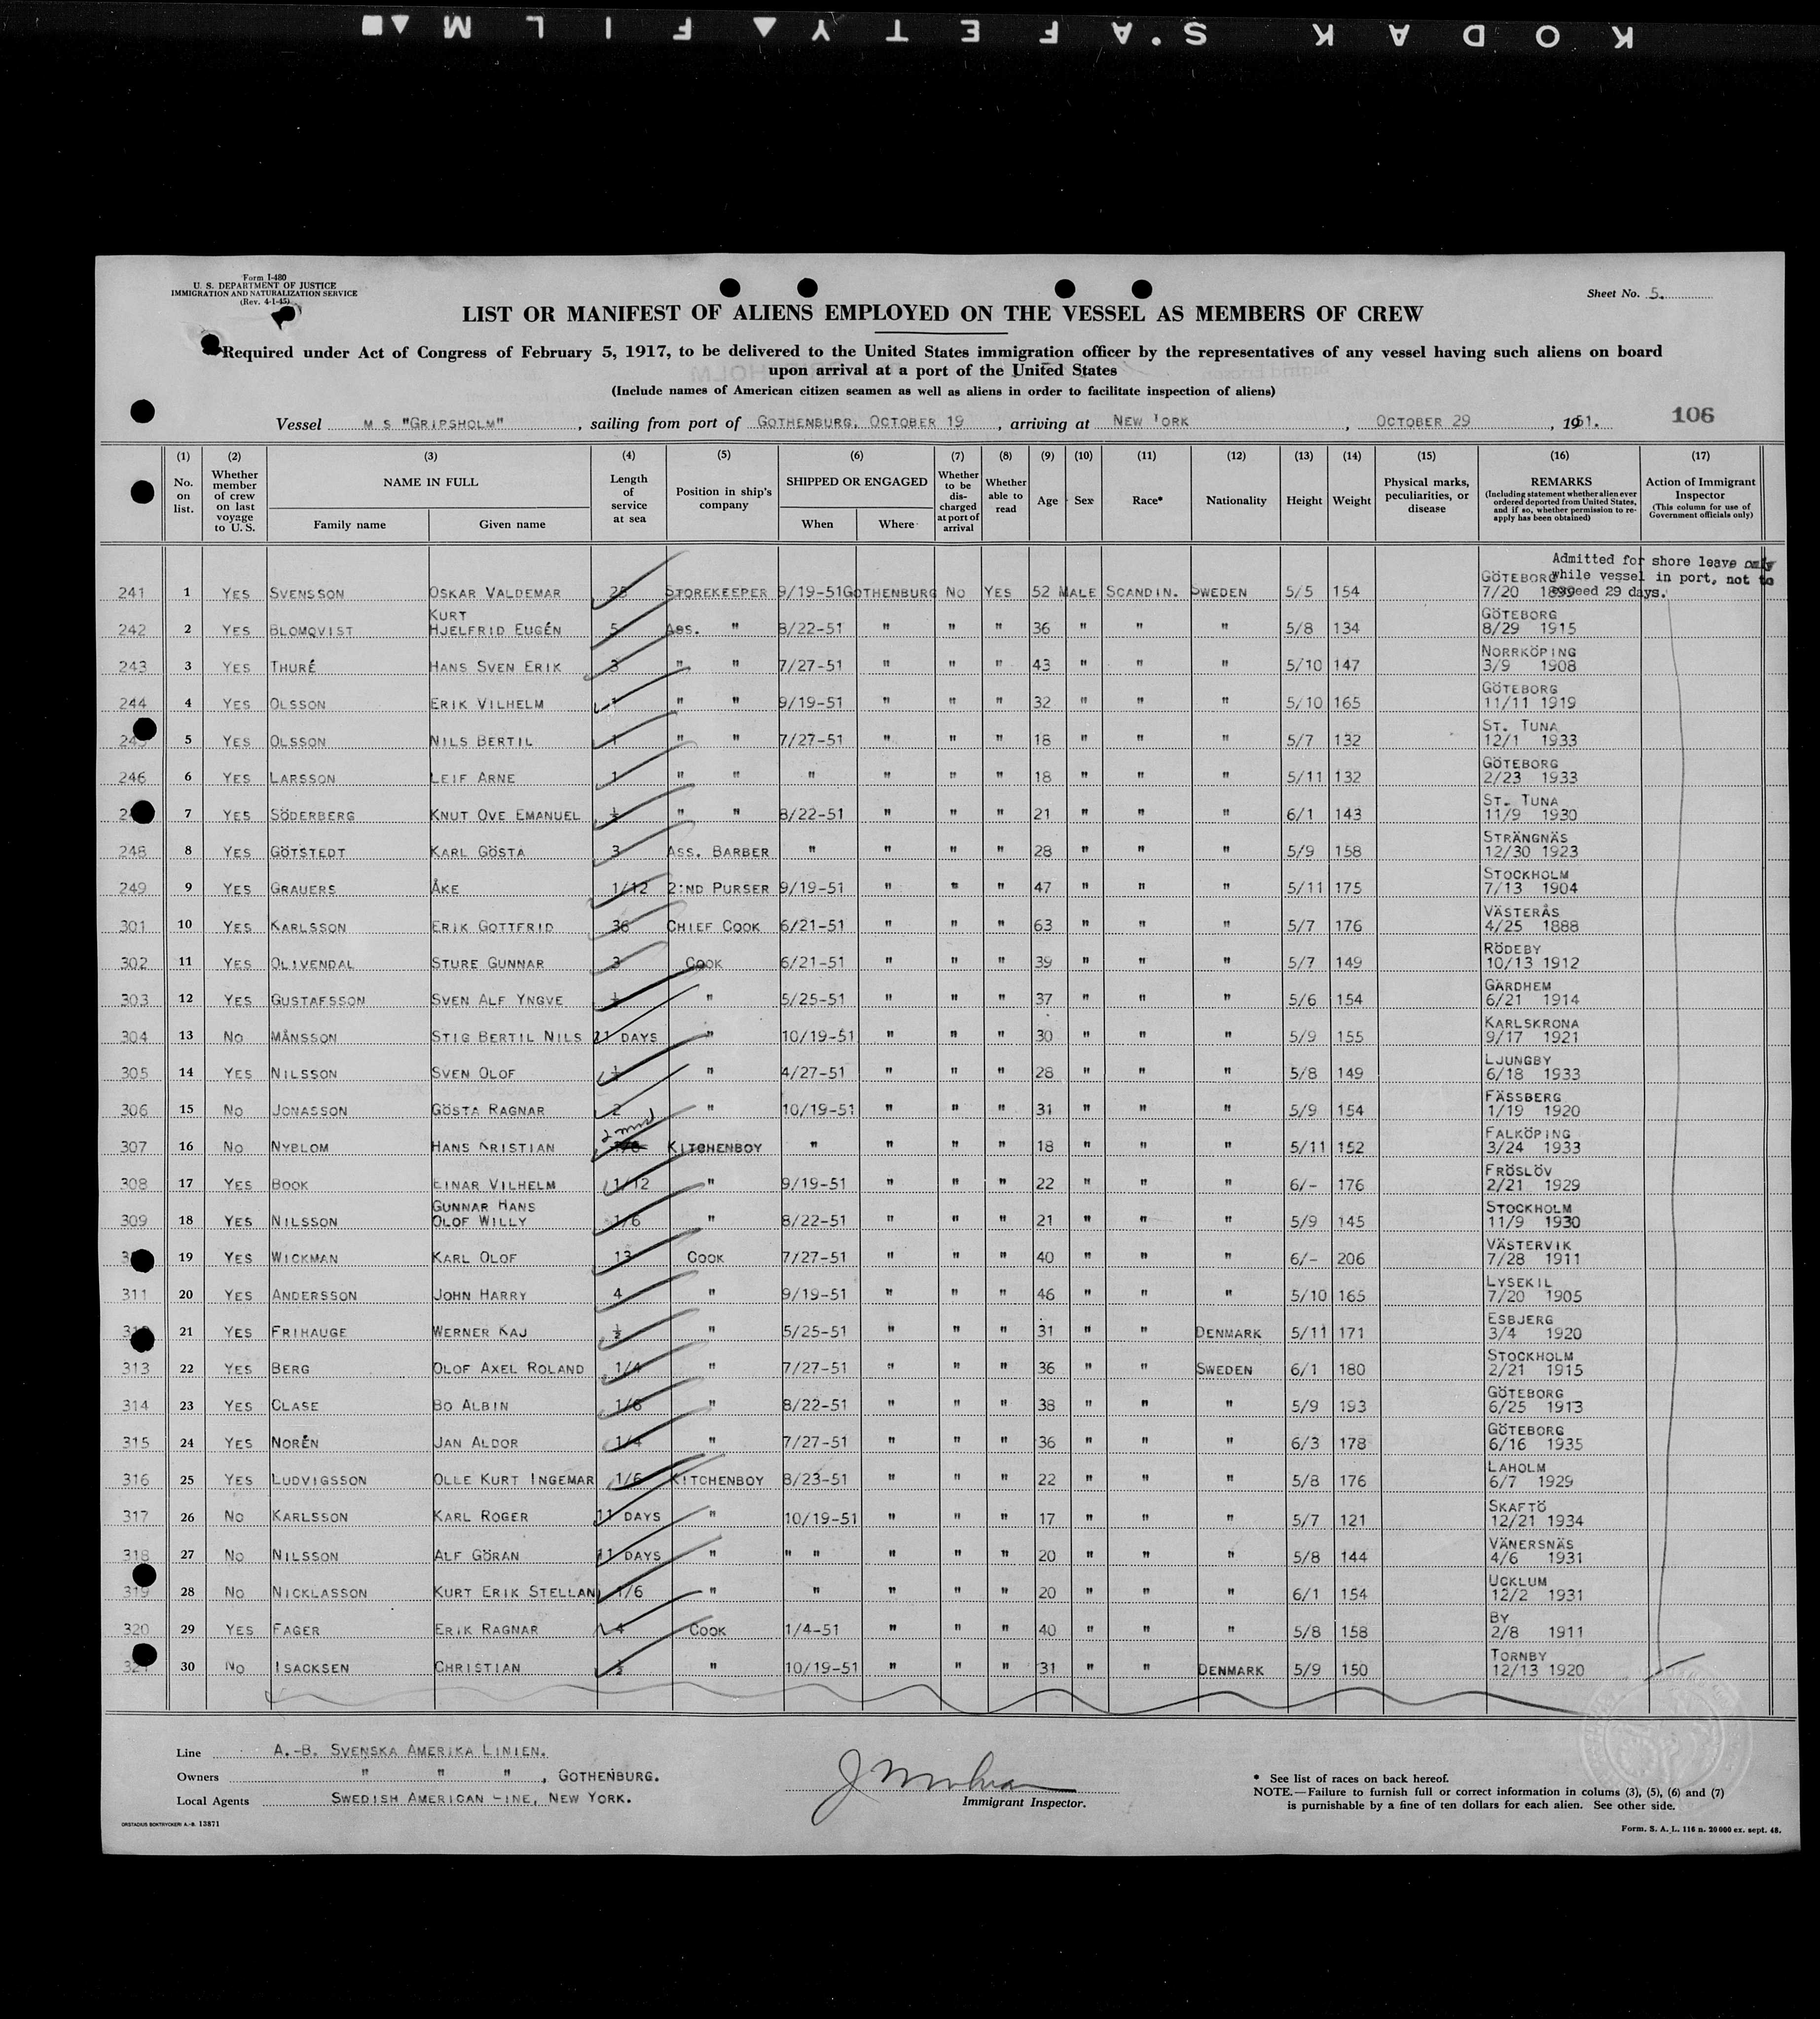 KODAK S'AFETY FILM
Form I-480
U. S. DEPARTMENT OF JUSTICE
IMMIGRATION AND NATURALIZATION SERVICE
(Rev. 4-1-45)
Sheet No. 5.
LIST OR MANIFEST OF ALIENS EMPLOYED ON THE VESSEL AS MEMBERS OF CREW
Required under Act of Congress of February 5, 1917, to be delivered to the United States immigration officer by the representatives of any vessel having such aliens on board
upon arrival at a port of the United States
(Include names of American citizen seamen as well as aliens in order to facilitate inspection of aliens)
Vessel M S "GRIPSHOLM", sailing from port of GOTHENBURG, OCTOBER 19, arriving at NEW YORK, OCTOBER 29, 1951. 106
(1) No. on list. (2) Whether member of crew on last voyage to U. S. (3) NAME IN FULL Family name Given name (4) Length of service at sea (5) Position in ship's company (6) SHIPPED OR ENGAGED When Where (7) Whether to be discharged at port of arrival (8) Whether able to read (9) Age (10) Sex (11) Race* (12) Nationality (13) Height (14) Weight (15) Physical marks, peculiarities, or disease (16) REMARKS (Including statement whether alien ever ordered deported from United States, and if so, whether permission to re-apply has been obtained) (17) Action of Immigrant Inspector (This column for use of Government officials only)
Admitted for shore leave only while vessel in port, not to exceed 29 days.
241 1 YES SVENSSON OSKAR VALDEMAR STOREKEEPER 9/19-51 GOTHENBURG NO YES 52 MALE SCANDIN. SWEDEN 5/5 154 GÖTEBORG 7/20 1899
242 2 YES BLOMQVIST KURT HJELFRID EUGÉN 5 ASS. " 8/22-51 " " " 36 " " " 5/8 134 GÖTEBORG 8/29 1915
243 3 YES THURÉ HANS SVEN ERIK 3 " " 7/27-51 " " " 43 " " " 5/10 147 NORRKÖPING 3/9 1908
244 4 YES OLSSON ERIK VILHELM 1 " " 9/19-51 " " " 32 " " " 5/10 165 GÖTEBORG 11/11 1919
245 5 YES OLSSON NILS BERTIL 1 " " 7/27-51 " " " 18 " " " 5/7 132 ST. TUNA 12/1 1933
246 6 YES LARSSON LEIF ARNE 1 " " " " " " 18 " " " 5/11 132 GÖTEBORG 2/23 1933
7 YES SÖDERBERG KNUT OVE EMANUEL ½ " " 8/22-51 " " " 21 " " " 6/1 143 ST. TUNA 11/9 1930
248 8 YES GÖTSTEDT KARL GÖSTA 3 ASS. BARBER " " " " 28 " " " 5/9 158 STRÄNGNÄS 12/30 1923
249 9 YES GRAUERS ÅKE 1/12 2:ND PURSER 9/19-51 " " " 47 " " " 5/11 175 STOCKHOLM 7/13 1904
301 10 YES KARLSSON ERIK GOTTFRID 36 CHIEF COOK 6/21-51 " " " 63 " " " 5/7 176 VÄSTERÅS 4/25 1888
302 11 YES OLIVENDAL STURE GUNNAR 3 COOK 6/21-51 " " " 39 " " " 5/7 149 RÖDEBY 10/13 1912
303 12 YES GUSTAFSSON SVEN ALF YNGVE ½ " 5/25-51 " " " 37 " " " 5/6 154 GÄRDHEM 6/21 1914
304 13 NO MÅNSSON STIG BERTIL NILS 11 DAYS " 10/19-51 " " " 30 " " " 5/9 155 KARLSKRONA 9/17 1921
305 14 YES NILSSON SVEN OLOF ½ " 4/27-51 " " " 28 " " " 5/8 149 LJUNGBY 6/18 1933
306 15 NO JONASSON GÖSTA RAGNAR 2 " 10/19-51 " " " 31 " " " 5/9 154 FÄSSBERG 1/19 1920
307 16 NO NYBLOM HANS KRISTIAN KITCHENBOY " " " " 18 " " " 5/11 152 FALKÖPING 3/24 1933
308 17 YES BOOK EINAR VILHELM 1/12 " 9/19-51 " " " 22 " " " 6/- 176 FRÖSLÖV 2/21 1929
309 18 YES NILSSON GUNNAR HANS OLOF WILLY 1/6 " 8/22-51 " " " 21 " " " 5/9 145 STOCKHOLM 11/9 1930
19 YES WICKMAN KARL OLOF 13 COOK 7/27-51 " " " 40 " " " 6/- 206 VÄSTERVIK 7/28 1911
311 20 YES ANDERSSON JOHN HARRY 4 " 9/19-51 " " " 46 " " " 5/10 165 LYSEKIL 7/20 1905
21 YES FRIHAUGE WERNER KAJ ½ " 5/25-51 " " " 31 " " DENMARK 5/11 171 ESBJERG 3/4 1920
313 22 YES BERG OLOF AXEL ROLAND 1/4 " 7/27-51 " " " 36 " " SWEDEN 6/1 180 STOCKHOLM 2/21 1915
314 23 YES CLASE BO ALBIN 1/6 " 8/22-51 " " " 38 " " " 5/9 193 GÖTEBORG 6/25 1913
315 24 YES NORÉN JAN ALDOR 1/4 " 7/27-51 " " " 36 " " " 6/3 178 GÖTEBORG 6/16 1935
316 25 YES LUDVIGSSON OLLE KURT INGEMAR 1/6 KITCHENBOY 8/23-51 " " " 22 " " " 5/8 176 LAHOLM 6/7 1929
317 26 NO KARLSSON KARL ROGER 11 DAYS " 10/19-51 " " " 17 " " " 5/7 121 SKAFTÖ 12/21 1934
318 27 NO NILSSON ALF GÖRAN 11 DAYS " " " " " " 20 " " " 5/8 144 VÄNERSNÄS 4/6 1931
319 28 NO NICKLASSON KURT ERIK STELLAN 1/6 " " " " " 20 " " " 6/1 154 UCKLUM 12/2 1931
320 29 YES FAGER ERIK RAGNAR 4 COOK 1/4-51 " " " 40 " " " 5/8 158 BY 2/8 1911
321 30 NO ISACKSEN CHRISTIAN ½ " 10/19-51 " " " 31 " " DENMARK 5/9 150 TORNBY 12/13 1920
Line A.-B. SVENSKA AMERIKA LINIEN.
Owners " " ", GOTHENBURG.
Local Agents SWEDISH AMERICAN LINE, NEW YORK.
Immigrant Inspector.
* See list of races on back hereof.
NOTE.—Failure to furnish full or correct information in colums (3), (5), (6) and (7)
is punishable by a fine of ten dollars for each alien. See other side.
ORSTADIUS BOKTRYCKERI A.-B. 13871
Form. S. A. L. 116 n. 20 000 ex. sept. 48.